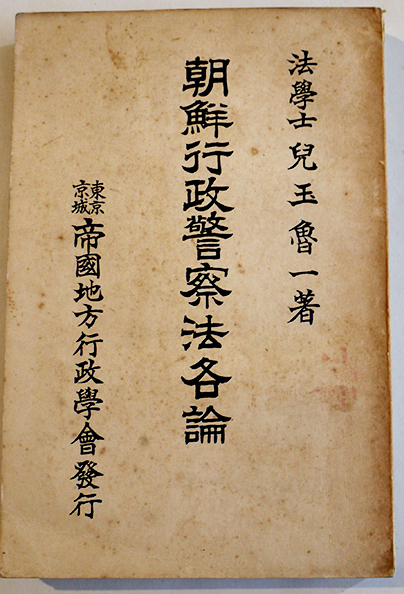 法學士 兒玉魯一著
朝鮮行政警察法各論
東京
京城
帝國地方行政學會發行